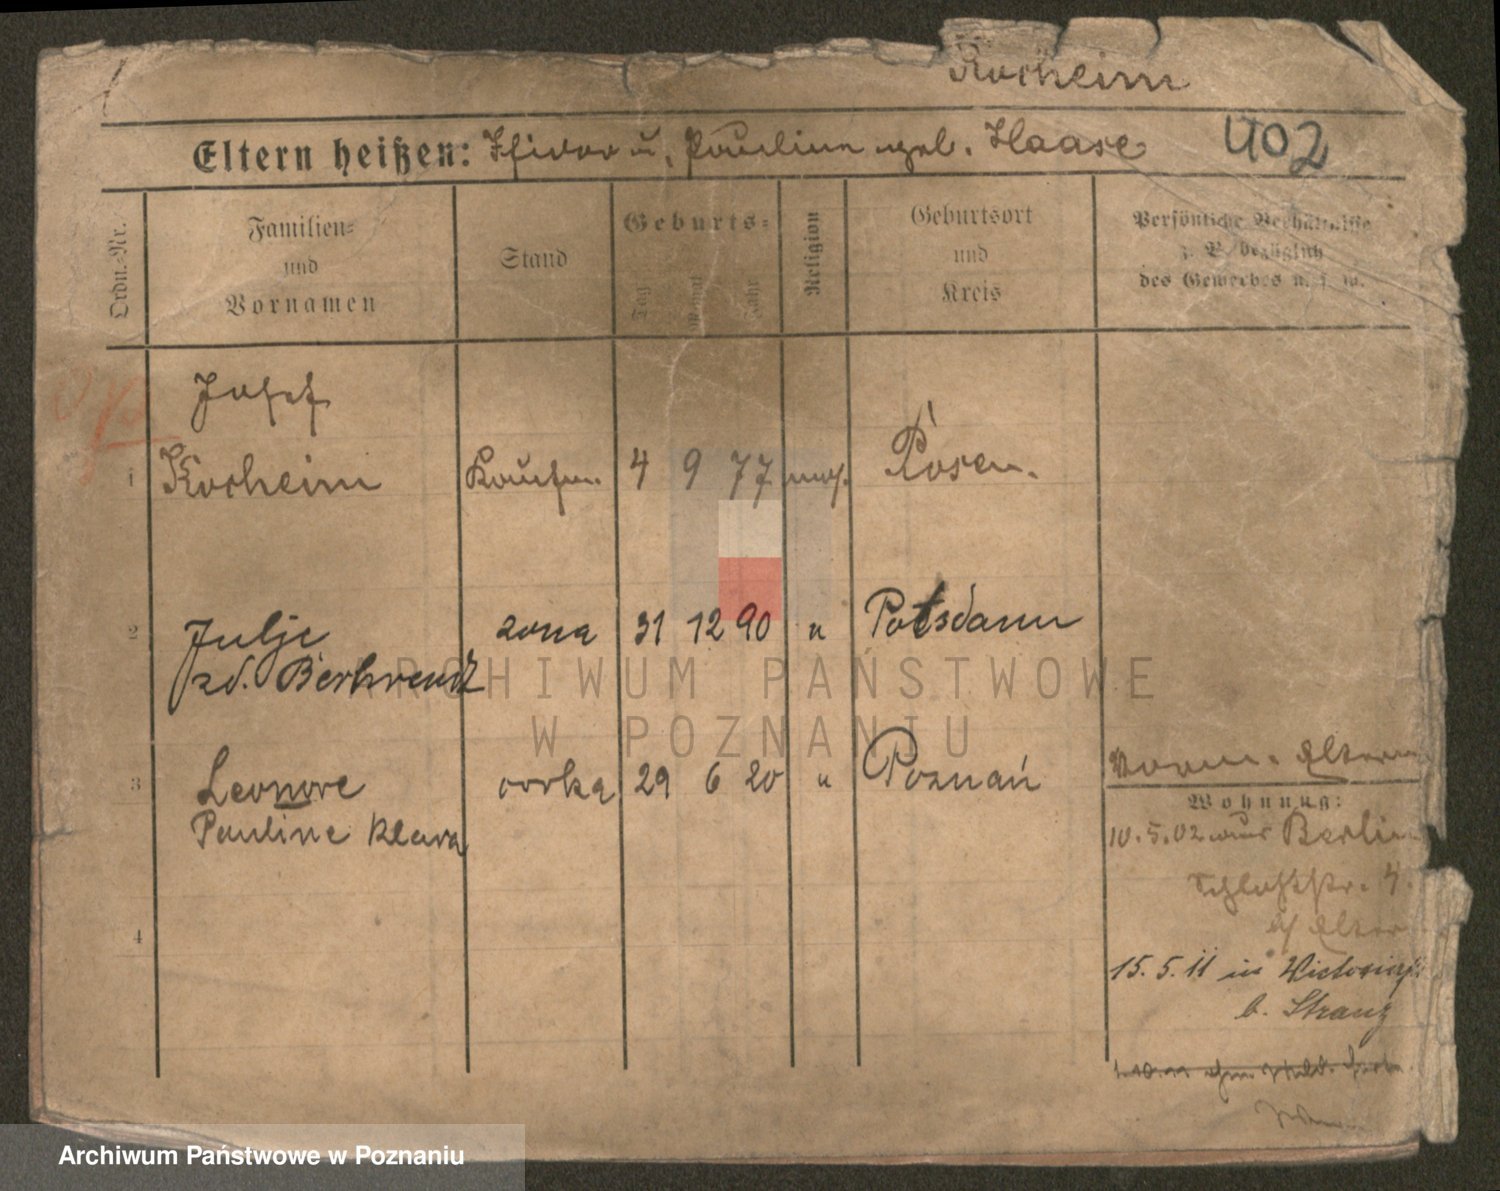 Korheim
Eltern heißen: Isidor u. Pauline geb. Haase 402
Ordn.-Nr.
Familien-
und
Vornamen
Stand
Geburts-
Tag
Monat
Jahr
Religion
Geburtsort
und
Kreis
Persönliche Verhältnisse
z. B. bezüglich
des Gewerbes u. s. w.
Josef
1 Korheim Kaufm. 4 9 77 mos. Posen.
2 Julje żona 31 12 90 " Potsdam
zd. Berhrendt
3 Leonore córka 29 6 20 " Poznań
Pauline Klara
4
Eltern
Wohnung:
10.5.02 aus Berlin
15.5.11 in
b. Stranz
ARCHIWUM PAŃSTWOWE
W POZNANIU
Archiwum Państwowe w Poznaniu